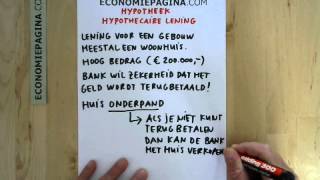 ECONOMIEPAGINA.COM
HYPOTHEEK
HYPOTHECAIRE LENING
LENING VOOR EEN GEBOUW
MEESTAL EEN WOONHUIS.
HOOG BEDRAG (€ 200.000,-)
BANK WIL ZEKERHEID DAT HET
GELD WORDT TERUGBETAALD!
HUIS ONDERPAND
ALS JE NIET KUNT
TERUG BETALEN
DAN KAN DE BANK
HET HUIS VERKOPEN
edding 300
ECONOMIEPAGINA.COM